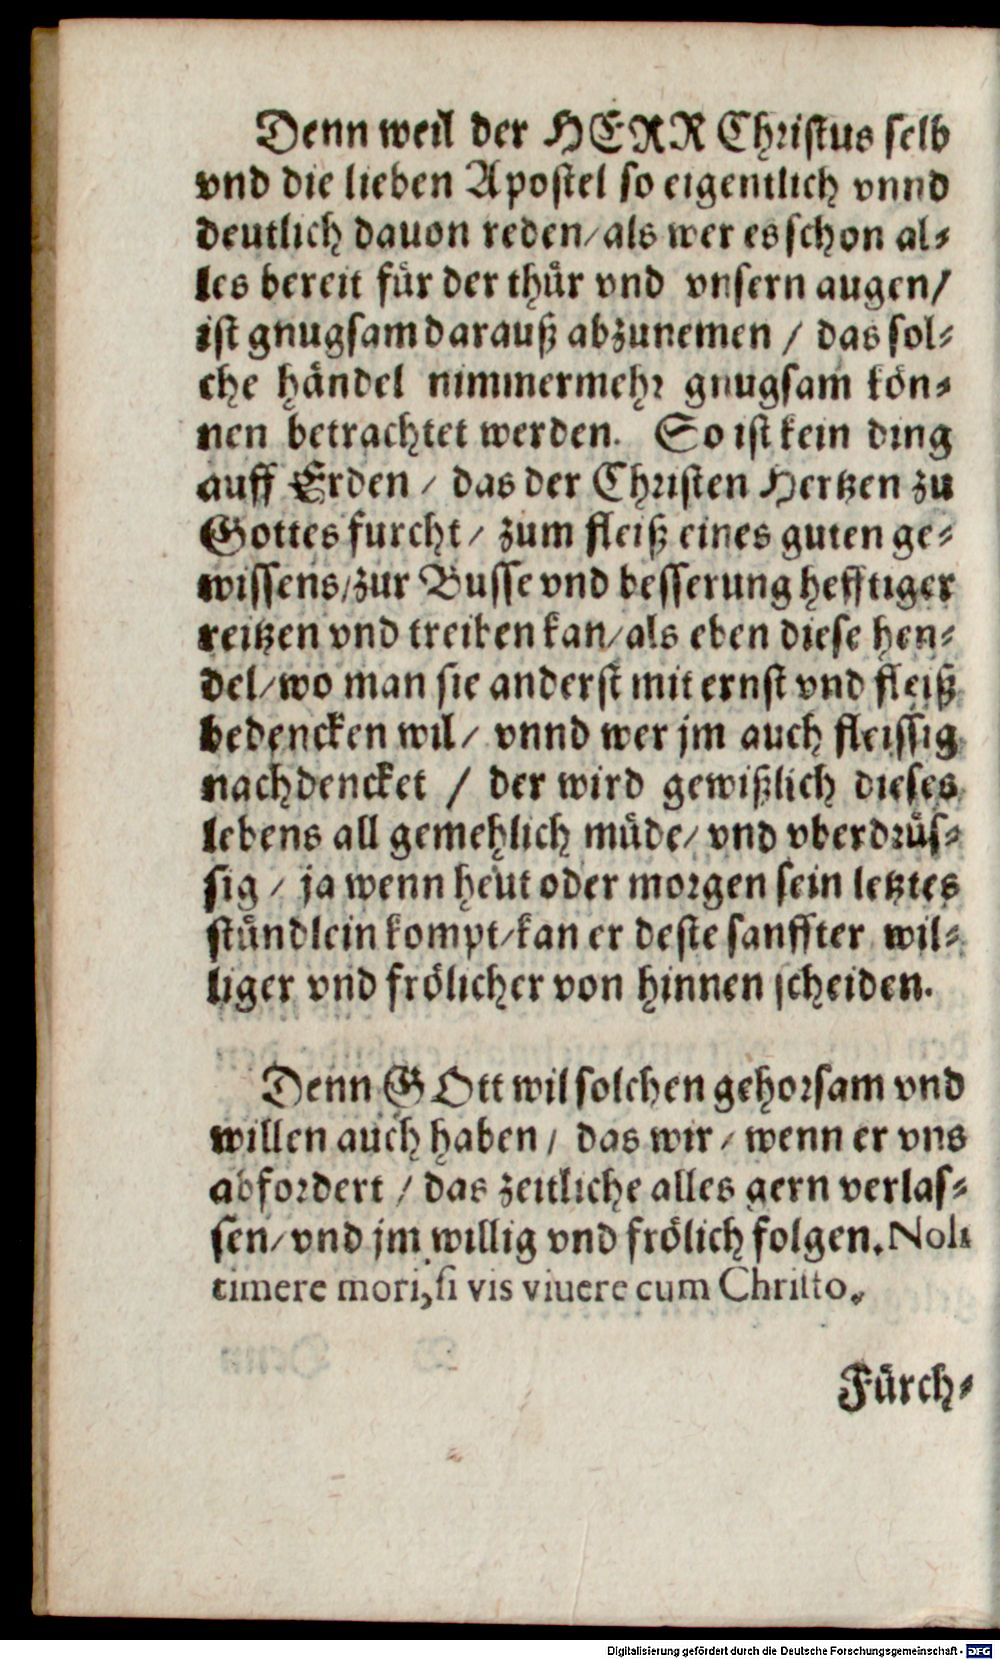 Denn weil der HERR Christus selb
vnd die lieben Apostel so eigentlich vnnd
deutlich dauon reden/ als wer es schon al⸗
les bereit für der thür vnd vnsern augen/
ist gnugsam darauß abzunemen / das sol⸗
che händel nimmermehr gnugsam kön⸗
nen betrachtet werden. So ist kein ding
auff Erden / das der Christen Hertzen zu
Gottes furcht/ zum fleiß eines guten ge⸗
wissens/ zur Busse vnd besserung hefftiger
reitzen vnd treiben kan/ als eben diese hen⸗
del/ wo man sie anderst mit ernst vnd fleiß
bedencken wil/ vnnd wer jm auch fleissig
nachdencket / der wird gewißlich dieses
lebens all gemehlich müde/ vnd vberdrüs⸗
sig / ja wenn heut oder morgen sein letztes
stündlein kompt/ kan er deste sanffter wil⸗
liger vnd frölicher von hinnen scheiden.
Denn GOtt wil solchen gehorsam vnd
willen auch haben / das wir / wenn er vns
abfordert / das zeitliche alles gern verlas⸗
sen/ vnd jm willig vnd frölich folgen. Noli
timere mori, si vis viuere cum Christo.
Fürch⸗
Digitalisierung gefördert durch die Deutsche Forschungsgemeinschaft - DFG